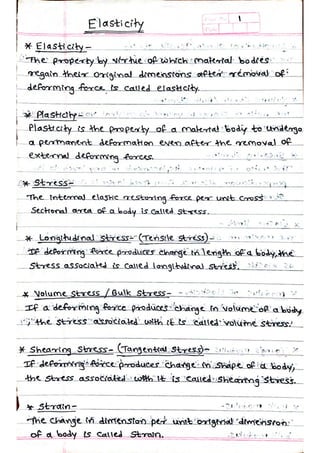 1
Elasticity
* Elasticity -
The property by virtue of which material bodies
regain their original dimensions after removal of
deforming force is called elasticity.
* Plasticity -
Plasticity is the property of a material body to undergo
a permanent deformation even after the removal of
external deforming forces.
* Stress -
The Internal elastic restoring force per unit cross
Sectional area of a body is called stress.
* Longitudinal stress - (Tensile stress) -
If deforming force produces change in length of a body, the
stress associated is called longitudinal stress.
* Volume stress / Bulk stress -
If a deforming force produces change in volume of a body
, the stress associated with it is called volume stress.
* Shearing stress - (Tangential stress) -
If deforming force produces change in shape of a body,
the stress associated with it is called shearing stress.
* Strain -
The change in dimension per unit original dimension
of a body is called strain.